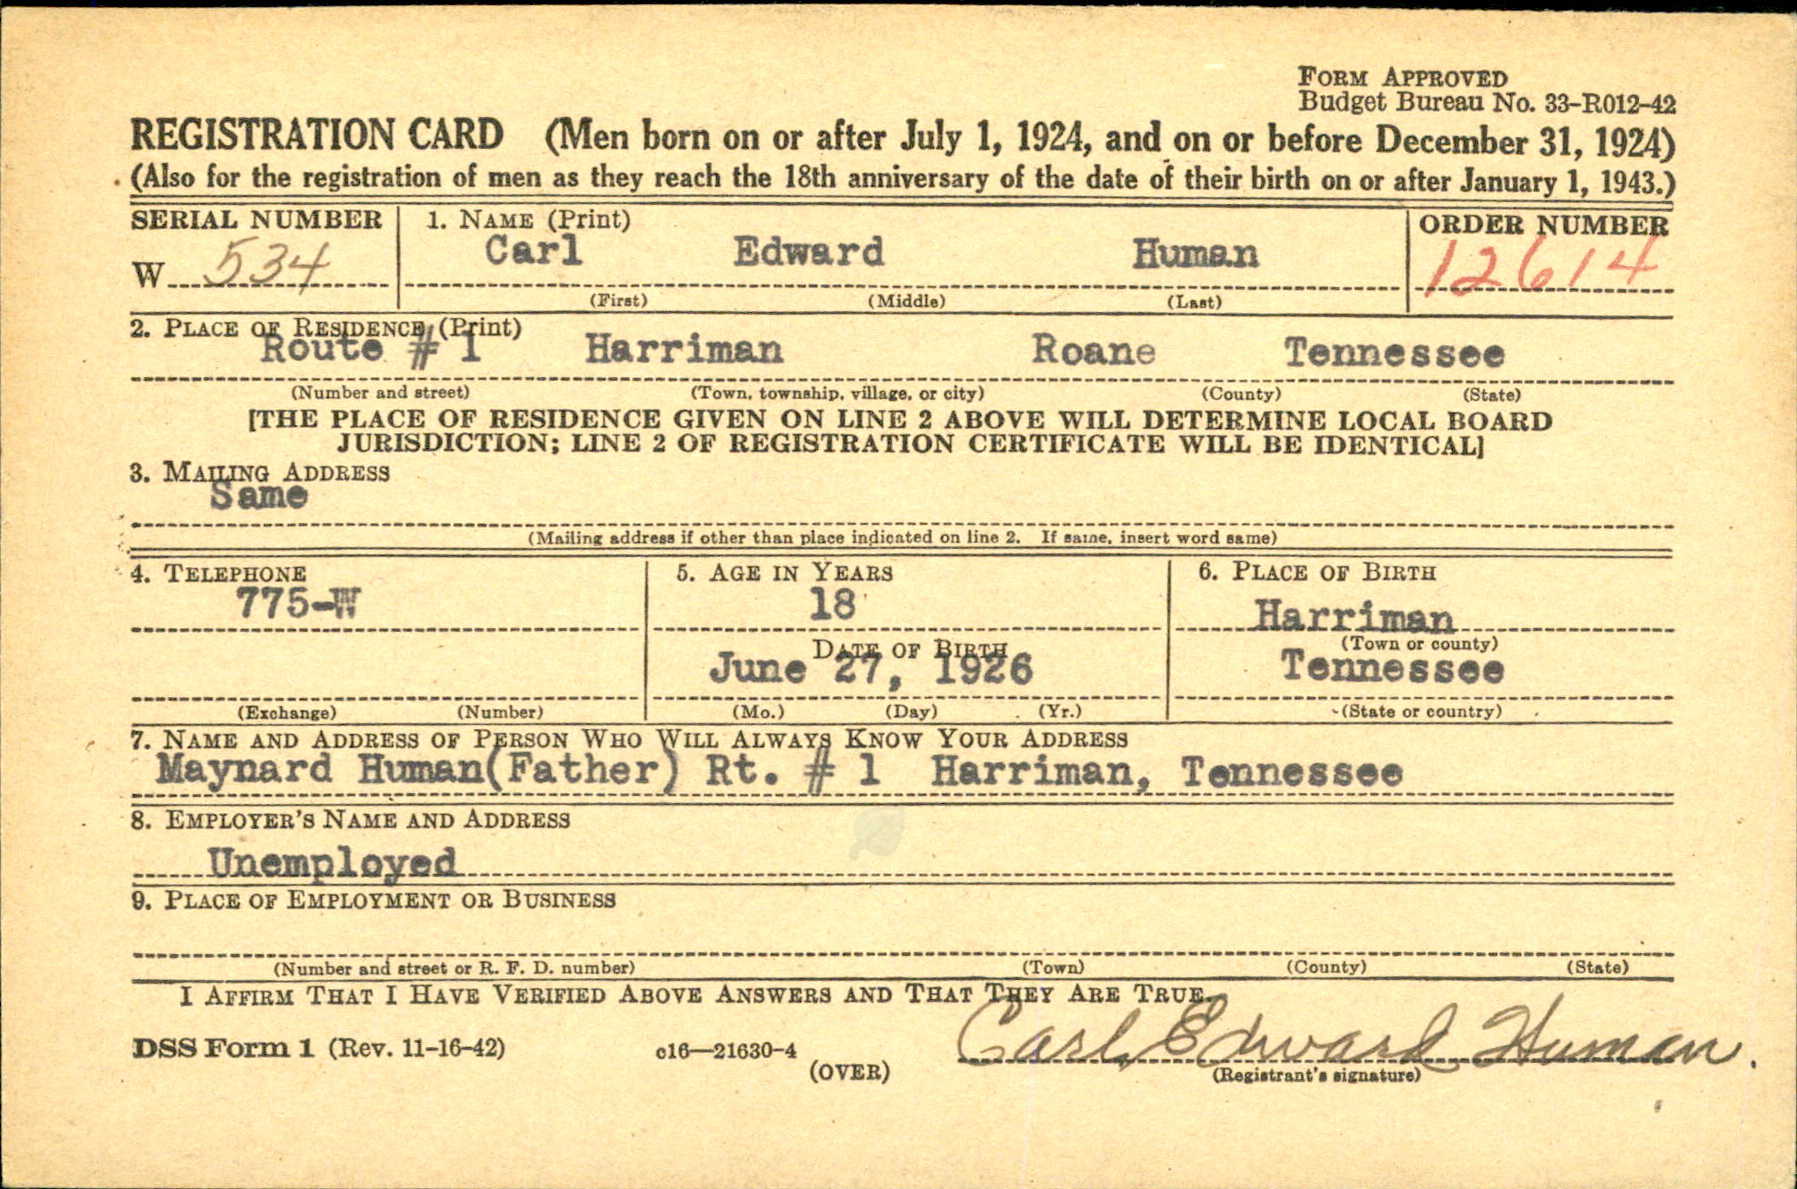 FORM APPROVED
Budget Bureau No. 33-R012-42
REGISTRATION CARD (Men born on or after July 1, 1924, and on or before December 31, 1924)
(Also for the registration of men as they reach the 18th anniversary of the date of their birth on or after January 1, 1943.)
SERIAL NUMBER 1. NAME (Print) ORDER NUMBER
W 534 Carl Edward Human 12614
(First) (Middle) (Last)
2. PLACE OF RESIDENCE (Print)
Route # 1 Harriman Roane Tennessee
(Number and street) (Town, township, village, or city) (County) (State)
[THE PLACE OF RESIDENCE GIVEN ON LINE 2 ABOVE WILL DETERMINE LOCAL BOARD
JURISDICTION; LINE 2 OF REGISTRATION CERTIFICATE WILL BE IDENTICAL]
3. MAILING ADDRESS
Same
(Mailing address if other than place indicated on line 2. If same, insert word same)
4. TELEPHONE 5. AGE IN YEARS 6. PLACE OF BIRTH
775-W 18 Harriman
DATE OF BIRTH (Town or county)
June 27, 1926 Tennessee
(Exchange) (Number) (Mo.) (Day) (Yr.) (State or country)
7. NAME AND ADDRESS OF PERSON WHO WILL ALWAYS KNOW YOUR ADDRESS
Maynard Human(Father) Rt. # 1 Harriman, Tennessee
8. EMPLOYER'S NAME AND ADDRESS
Unemployed
9. PLACE OF EMPLOYMENT OR BUSINESS
(Number and street or R. F. D. number) (Town) (County) (State)
I AFFIRM THAT I HAVE VERIFIED ABOVE ANSWERS AND THAT THEY ARE TRUE.
DSS Form 1 (Rev. 11-16-42) c16—21630-4 Carl Edward Human.
(OVER) (Registrant's signature)